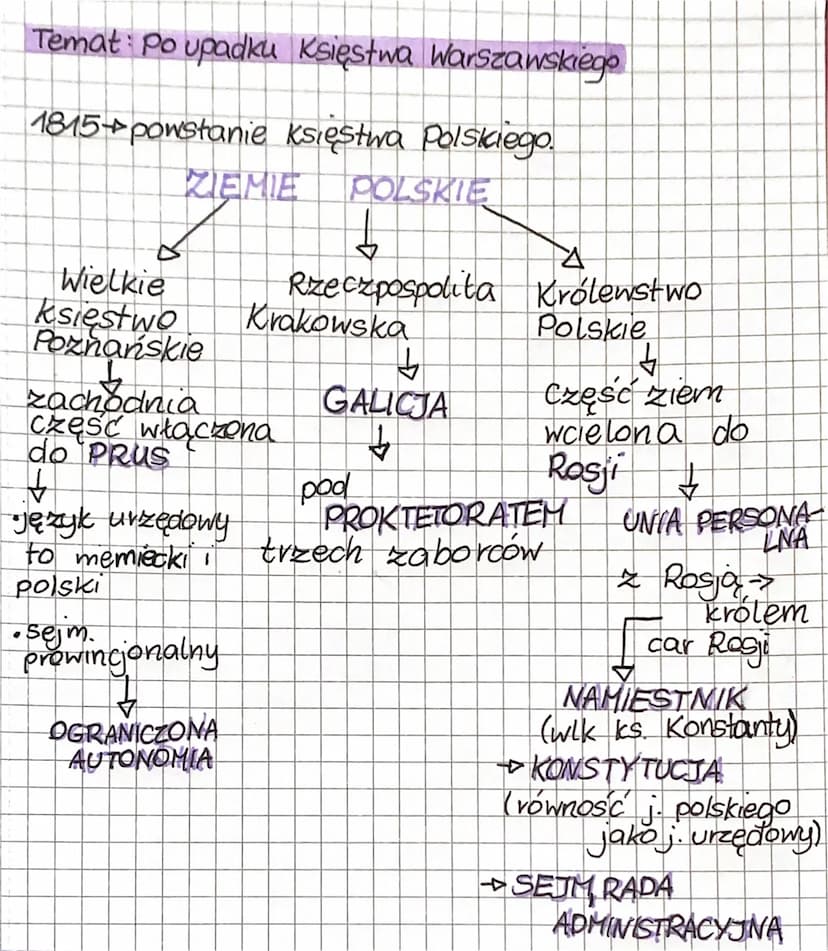 Temat: Po upadku Księstwa Warszawskiego
1815→powstanie Księstwa Polskiego.
ZIEMIE POLSKIE
Wielkie
Księstwo
Poznańskie
↓
zachodnia
część włączona
do PRUS
↓
•język urzędowy
to niemiecki i
polski
•sejm.
prowincjonalny
↓
OGRANICZONA
AUTONOMIA
Rzeczpospolita
Krakowska
↓
GALICJA
↓
pod
PROKTETORATEM
trzech zaborców
Królewstwo
Polskie
↓
Część ziem
wcielona do
Rosji
↓
UNIA PERSONA-
LNA
z Rosją→
królem
car Rosji
NAMIESTNIK
(wlk ks. Konstanty)
→KONSTYTUCJA
(równość j. polskiego
jako j. urzędowy)
→SEJM, RADA
ADMINISTRACYJNA